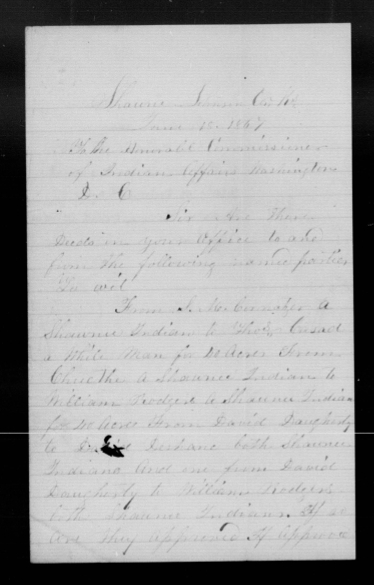 Shawnee Johnson Co Ks
June 10 1867
To the Honorable Commissioner
of Indian Affairs Washington
D. C
Sir Are There
Deeds in your Office to and
from The following named parties
To wit
From J. Mc A
Shawnee Indian to Thos
a White Man for 80 Acres From
A Shawnee Indian to
William Rodgers Shawnee Indian
for 40 Acre From David Daugherty
to both Shawnee
Indians And one from David
Daugherty to William Rodgers
both Shawnee Indians If so
Are They Approved If Approved